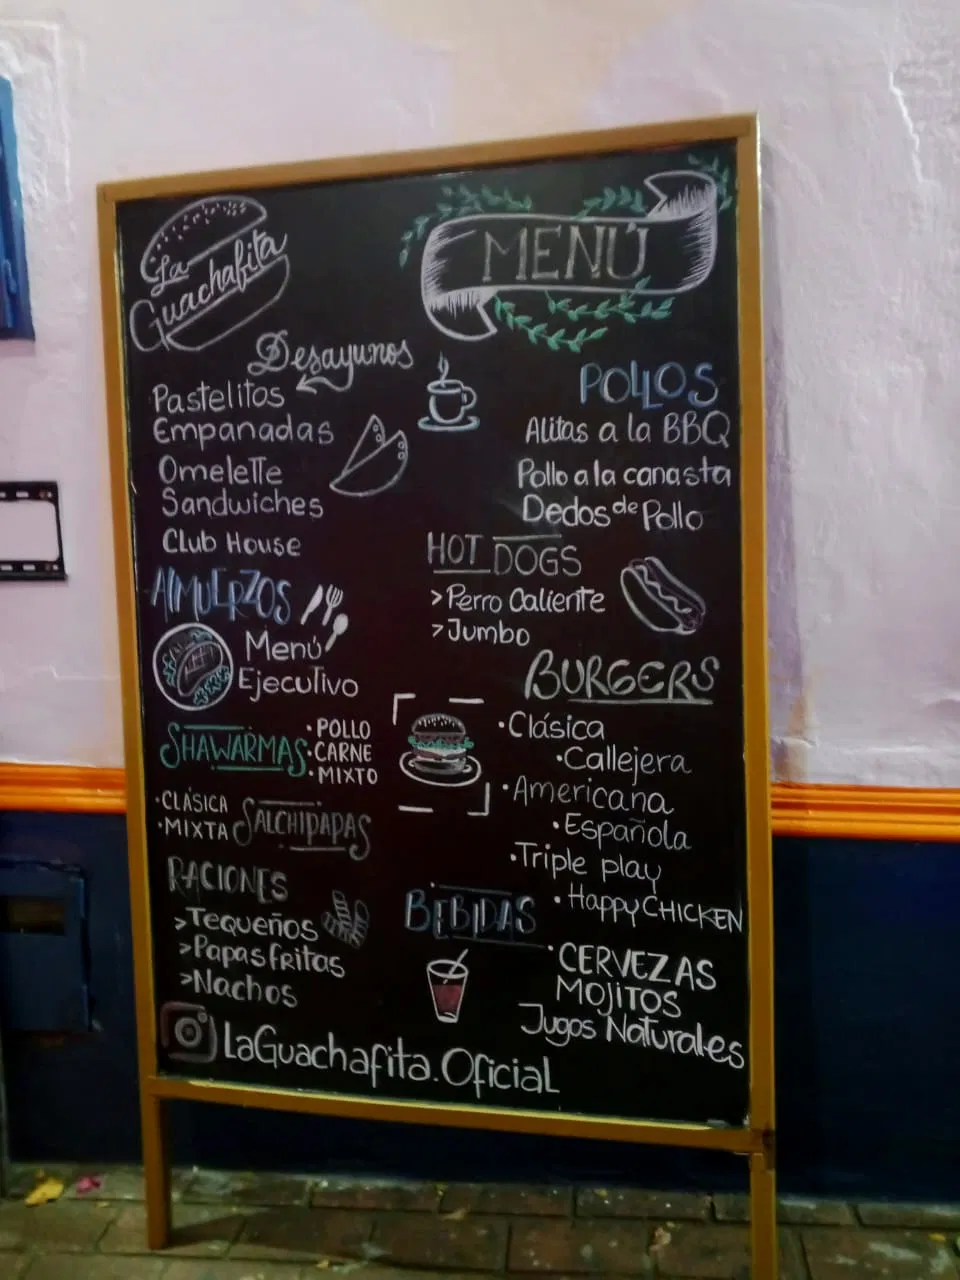 La
Guachafita
MENÚ
Desayunos
Pastelitos
Empanadas
Omelette
Sandwiches
Club House
ALMUERZOS
Menú
Ejecutivo
SHAWARMAS
• POLLO
• CARNE
• MIXTO
• CLÁSICA
• MIXTA
SALCHIPAPAS
RACIONES
> Tequeños
> Papas fritas
> Nachos
POLLOS
Alitas a la BBQ
Pollo a la canasta
Dedos de Pollo
HOT DOGS
> Perro Caliente
> Jumbo
BURGERS
• Clásica
• Callejera
• Americana
• Española
• Triple play
• Happy CHICKEN
BEBIDAS
CERVEZAS
MOJITOS
Jugos Naturales
LaGuachafita.Oficial